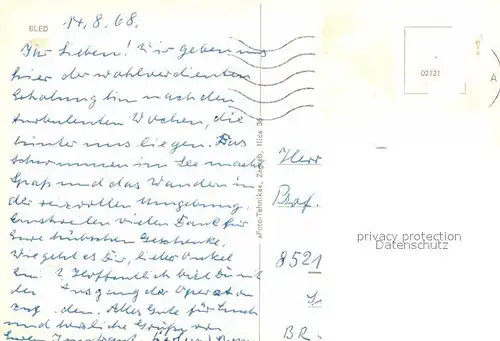 BLED
14.8.68.
Ihr Lieben! Wir geben uns
hier der wohlverdienten
Erholung hin nach den
turbulenten Wochen, die
hinter uns liegen. Das
Schwimmen im See macht
Spaß und das Wandern in
der reizvollen Umgebung.
Einstweilen vielen Dank für
Eure hübschen Geschenke.
Wie geht es Dir, lieber Onkel
? Hoffentlich bist Du mit
dem Ausgang der Operation
zufrieden. Alles Gute für Euch
und herzliche Grüße von
Euren
»Foto-Tehnika«, Zagreb, Ilica 36
02131
A
Herr
Prof.
8521
BR
privacy protection
Datenschutz